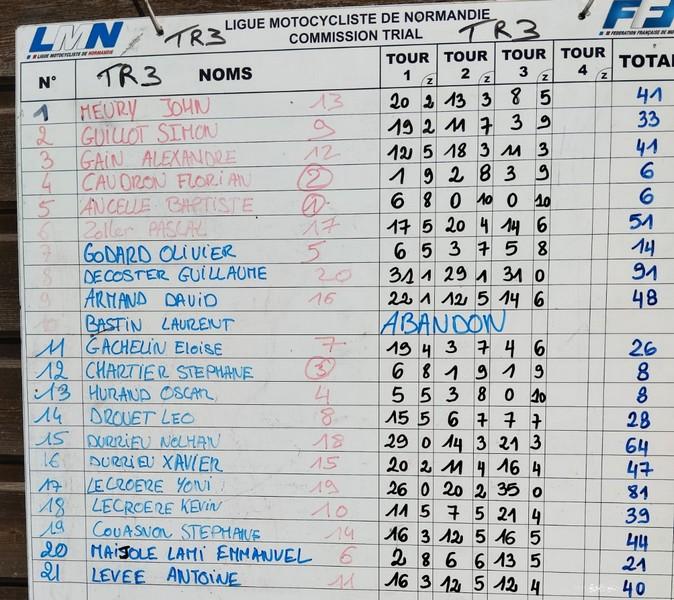 LMN LIGUE MOTOCYCLISTE DE NORMANDIE
TR3 LIGUE MOTOCYCLISTE DE NORMANDIE
COMMISSION TRIAL TR3
N° TR3 NOMS TOUR 1 z TOUR 2 z TOUR 3 z TOUR 4 z
1 MEURY JOHN 13 20 2 13 3 8 5 41
2 GUILLOT SIMON 9 19 2 11 7 3 9 33
3 GAIN ALEXANDRE 12 12 5 18 3 11 3 41
4 CAUDRON FLORIAN 2 1 9 2 8 3 9 6
5 ANCELLE BAPTISTE 1 6 8 0 10 0 10 6
6 Zoller PASCAL 17 17 5 20 4 14 6 51
7 GODARD OLIVIER 5 6 5 3 7 5 8 14
8 DECOSTER GUILLAUME 20 31 1 29 1 31 0 91
9 ARMAND DAVID 16 22 1 12 5 14 6 48
10 BASTIN LAURENT ABANDON
11 GACHELIN Eloise 7 19 4 3 7 4 6 26
12 CHARTIER STEPHANE 3 6 8 1 9 1 9 8
13 HURAND OSCAR 4 5 5 3 8 0 10 8
14 DROUET LEO 8 15 5 6 7 7 7 28
15 DURRIEU NOLHAN 18 29 0 14 3 21 3 64
16 DURRIEU XAVIER 15 20 2 11 4 16 4 47
17 LECROERE YONI 19 26 0 20 2 35 0 81
18 LECROERE KEVIN 10 11 5 7 5 21 4 39
19 COUASNON STEPHANE 14 16 3 12 5 16 5 44
20 MAISOLE LAMI EMMANUEL 6 2 8 6 6 13 5 21
21 LEVEE ANTOINE 11 16 3 12 5 12 4 40